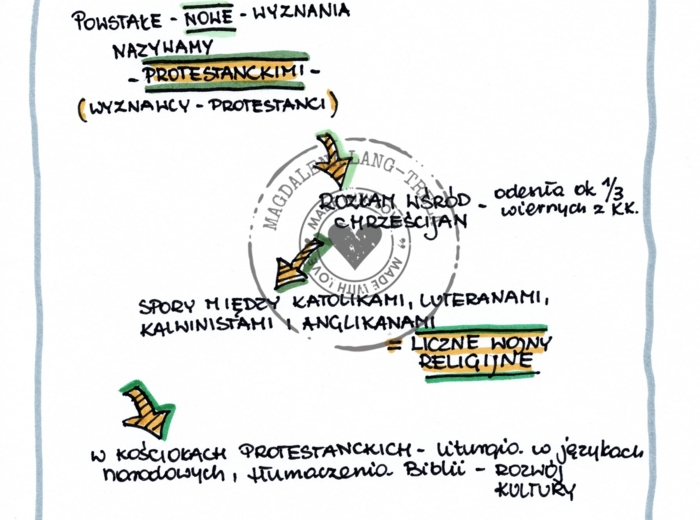 POWSTAŁE - NOWE - WYZNANIA
NAZYWAMY
- PROTESTANCKIMI -
(WYZNAWCY - PROTESTANCI)
ROZŁAM WŚRÓD - odeszła ok 1/3
CHRZEŚCIJAN wiernych z KK.
SPORY MIĘDZY KATOLIKAMI, LUTERANAMI,
KALWINISTAMI I ANGLIKANAMI
= LICZNE WOJNY
RELIGIJNE
W KOŚCIOŁACH PROTESTANCKICH - liturgia w językach
narodowych, tłumaczenia Biblii - ROZWÓJ
KULTURY
MAGDALENA LANG-
MADE WITH LOVE